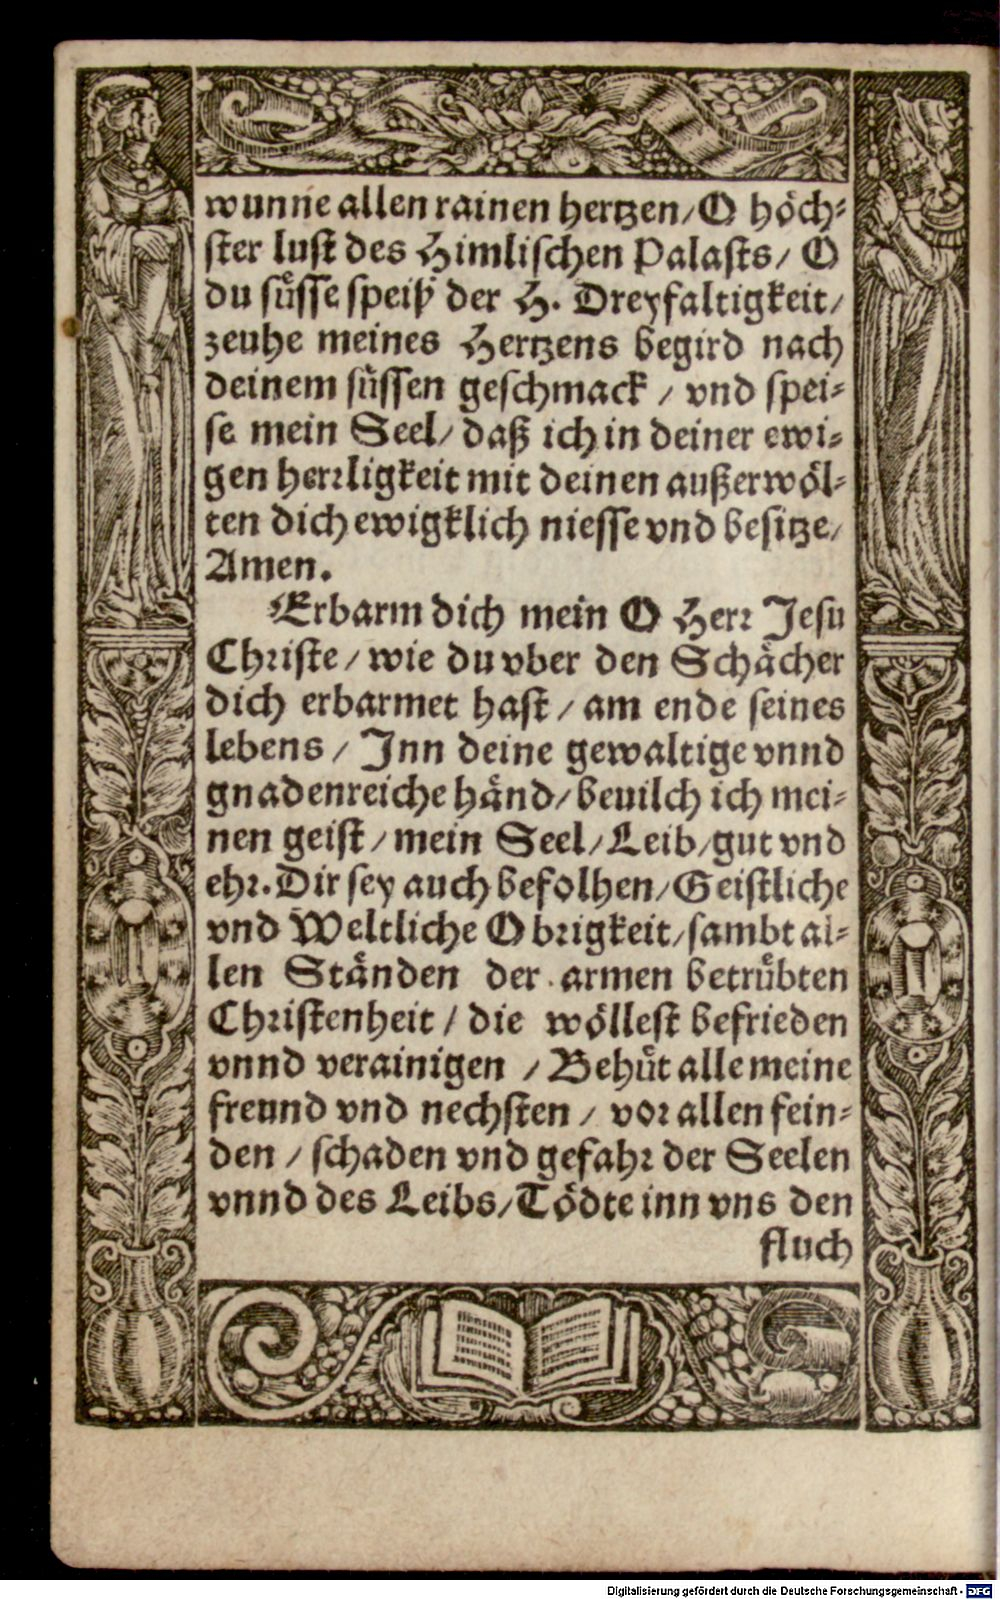 wunne allen rainen hertzen/ O höch⸗
ster lust des Himlischen Palasts/ O
du süsse speiß der H. Dreyfaltigkeit/
zeuhe meines Hertzens begird nach
deinem süssen geschmack / vnd spei⸗
se mein Seel/ daß ich in deiner ewi⸗
gen herrligkeit mit deinen außerwöl⸗
ten dich ewigklich niesse vnd besitze/
Amen.
Erbarm dich mein O Herr Jesu
Christe / wie du vber den Schächer
dich erbarmet hast / am ende seines
lebens / Jnn deine gewaltige vnnd
gnadenreiche händ/ beuilch ich mei⸗
nen geist / mein Seel/ Leib/ gut vnd
ehr. Dir sey auch befolhen/ Geistliche
vnd Weltliche Obrigkeit/ sambt al⸗
len Ständen der armen betrübten
Christenheit / die wöllest befrieden
vnnd verainigen / Behüt alle meine
freund vnd nechsten / vor allen fein⸗
den / schaden vnd gefahr der Seelen
vnnd des Leibs/ Tödte inn vns den
fluch
Digitalisierung gefördert durch die Deutsche Forschungsgemeinschaft - DFG